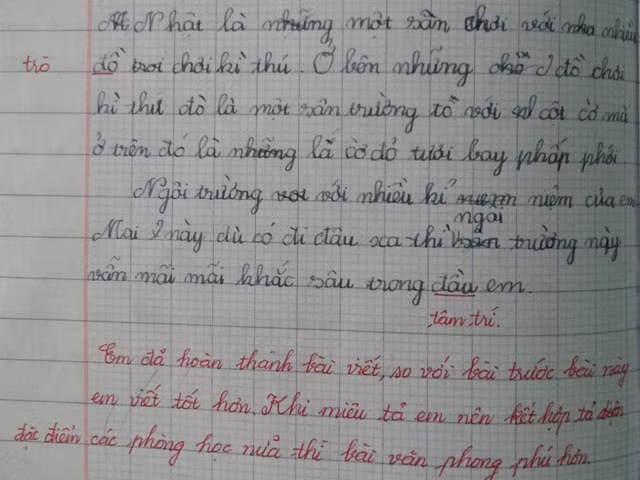 Nhật là những một sân chơi với nhiều
trò
đồ trơi chơi kì thú. Ở bên những đồ chơi
kì thú đó là một sân trường tô với cột cờ mà
ở trên đó là những lá cờ đỏ tươi bay phấp phới
Ngôi trường với nhiều kỉ niệm của em.
ngai
Mai này dù có đi đâu xa thì trường này
vẫn mãi mãi khắc sâu trong đầu em.
tâm trí.
Em đã hoàn thành bài viết, so với bài trước bài này
em viết tốt hơn. Khi miêu tả em nên kết hợp tả
đặc điểm các phòng học nữa thì bài văn phong phú hơn.